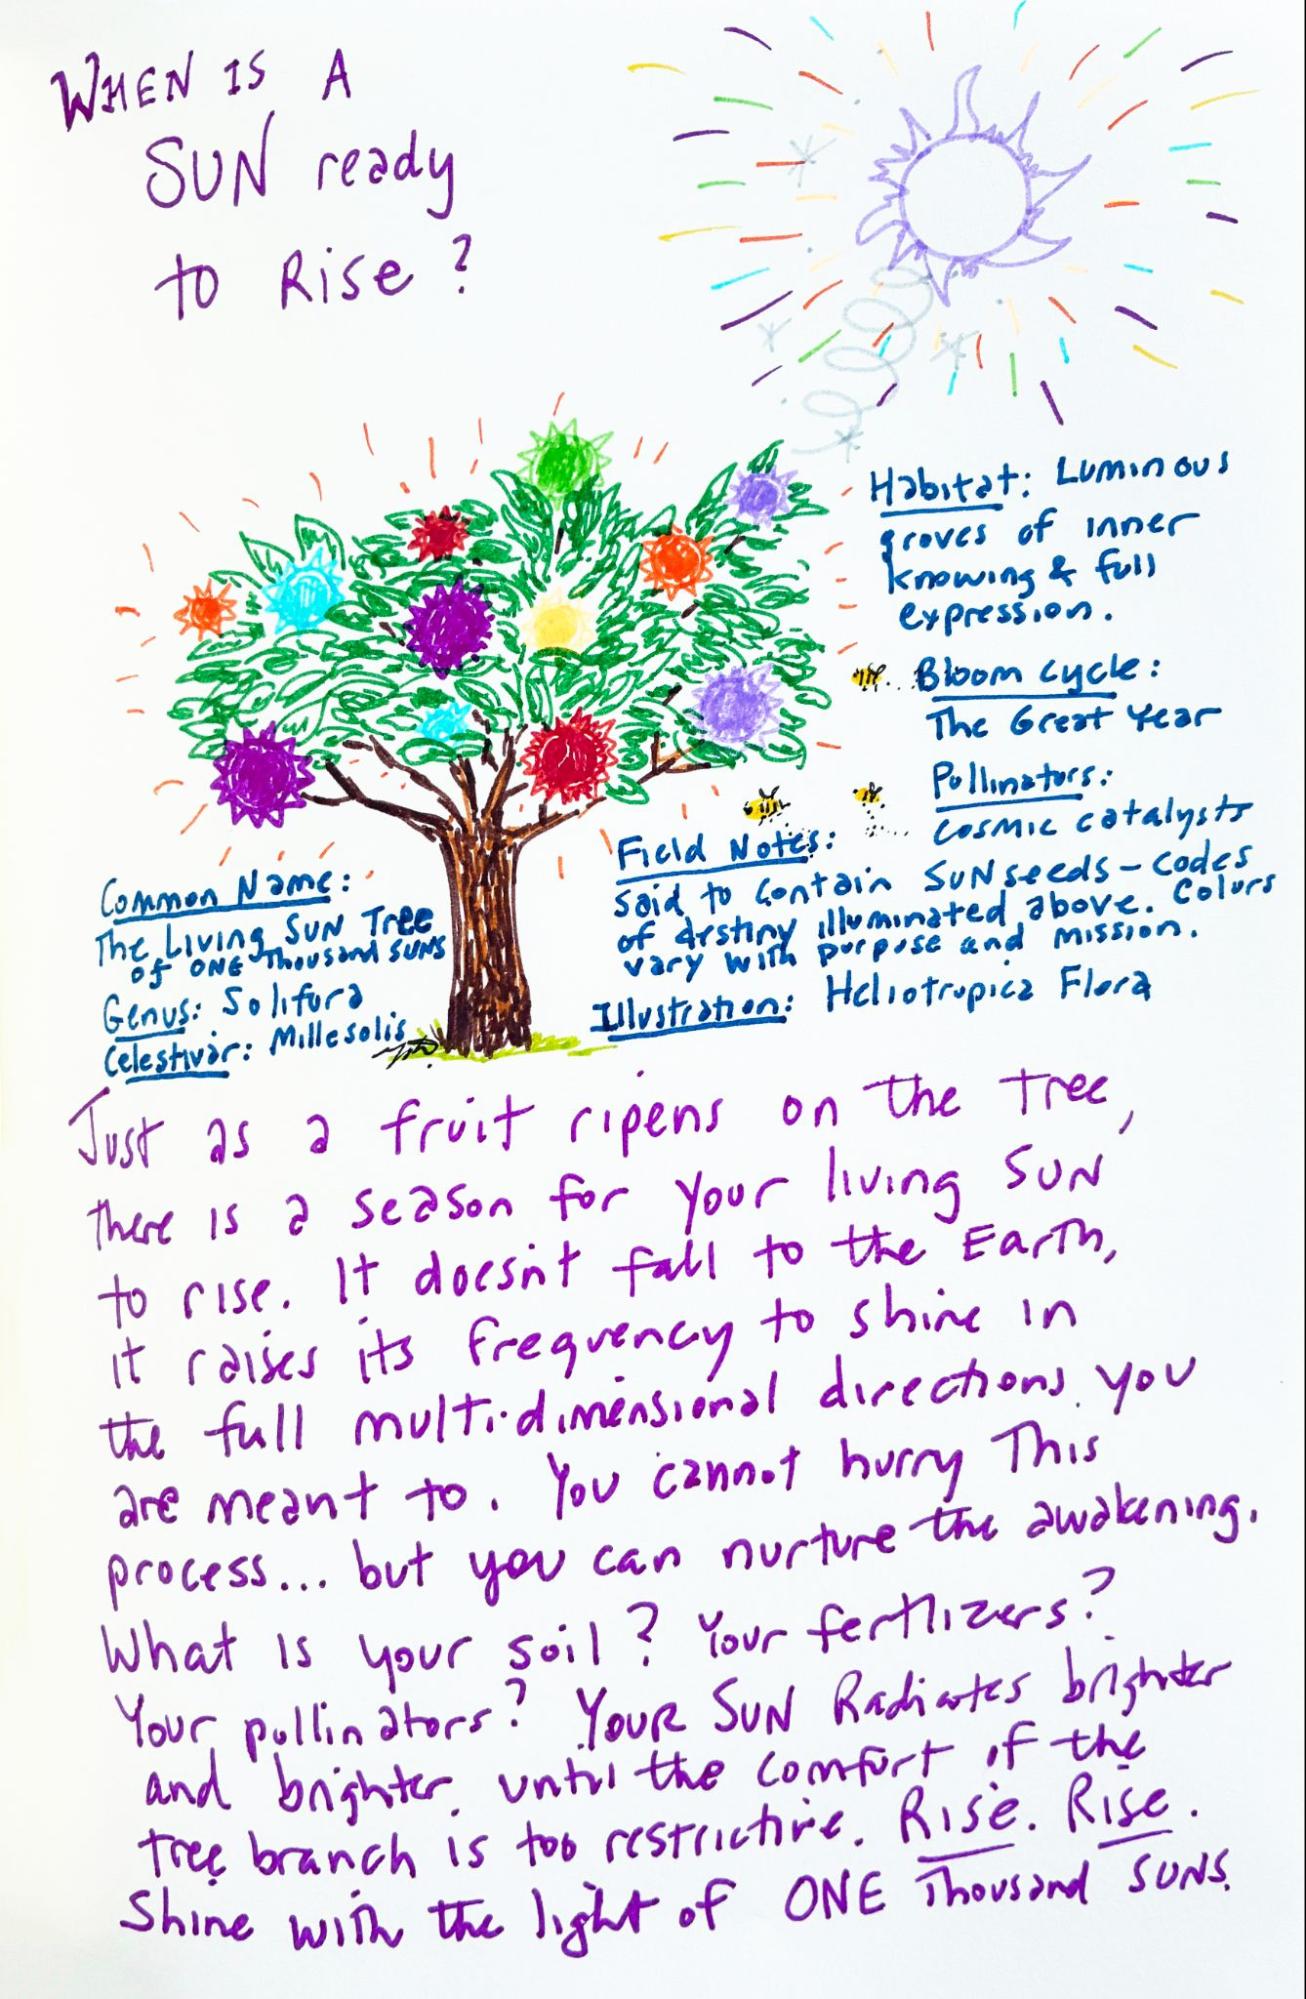 WHEN IS A
SUN ready
to Rise?
Habitat: Luminous
groves of inner
knowing & full
expression.
Bloom cycle:
The Great Year
Pollinators:
cosmic catalysts
Field Notes:
Said to contain SUN seeds - codes
of destiny illuminated above. Colors
vary with purpose and mission.
Illustration: Heliotropica Flora
Common Name:
The Living SUN Tree
of ONE Thousand SUNS
Genus: Solifura
Celestivar: Millesolis
Just as a fruit ripens on the tree,
there is a season for your living SUN
to rise. It doesn't fall to the Earth,
it raises its frequency to shine in
the full multi-dimensional directions you
are meant to. You cannot hurry This
process... but you can nurture the awakening.
What is your soil? Your fertlizers?
Your pollinators? YOUR SUN Radiates brighter
and brighter, until the comfort of the
tree branch is too restrictive. Rise. Rise.
Shine with the light of ONE Thousand SUNS.